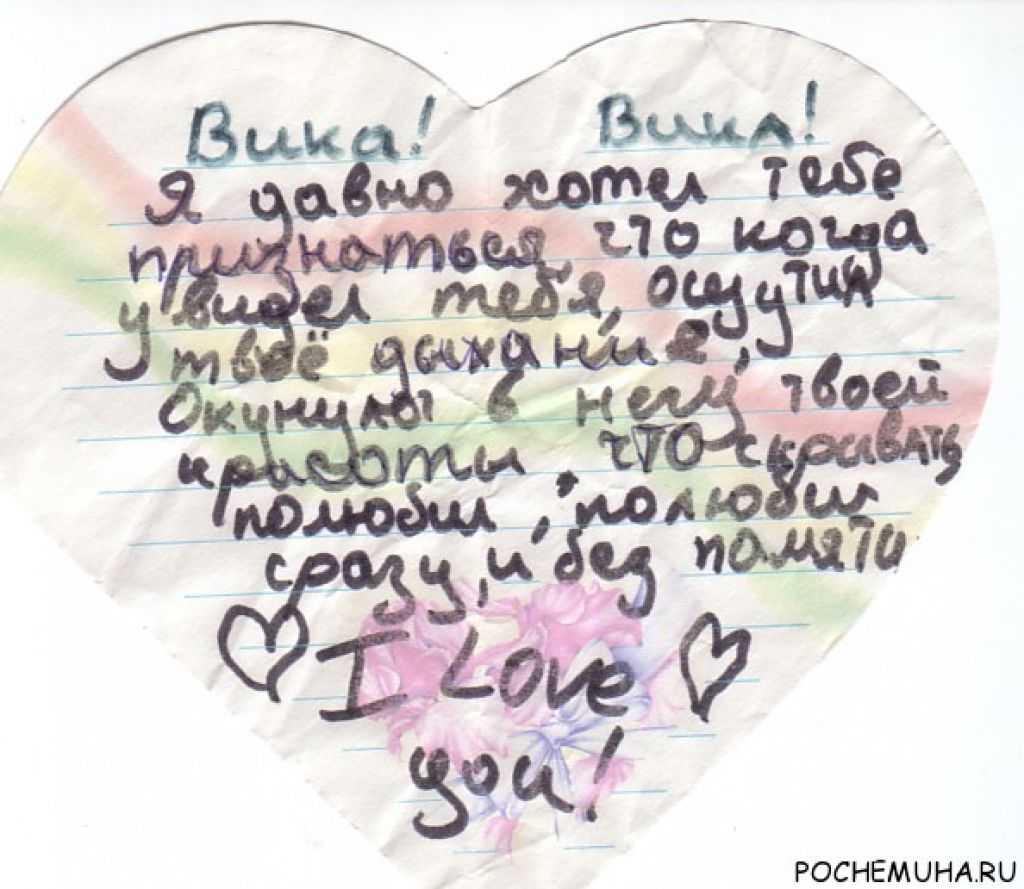 Вика! Вика!
Я давно хотел тебе
признаться, что когда
увидел тебя, ощутил
твоё дыхание,
Окунулся в негу твоей
красоты, что скрывать
полюбил, полюбил
сразу, и без памяти
I Love
you!
POCHEMUHA.RU